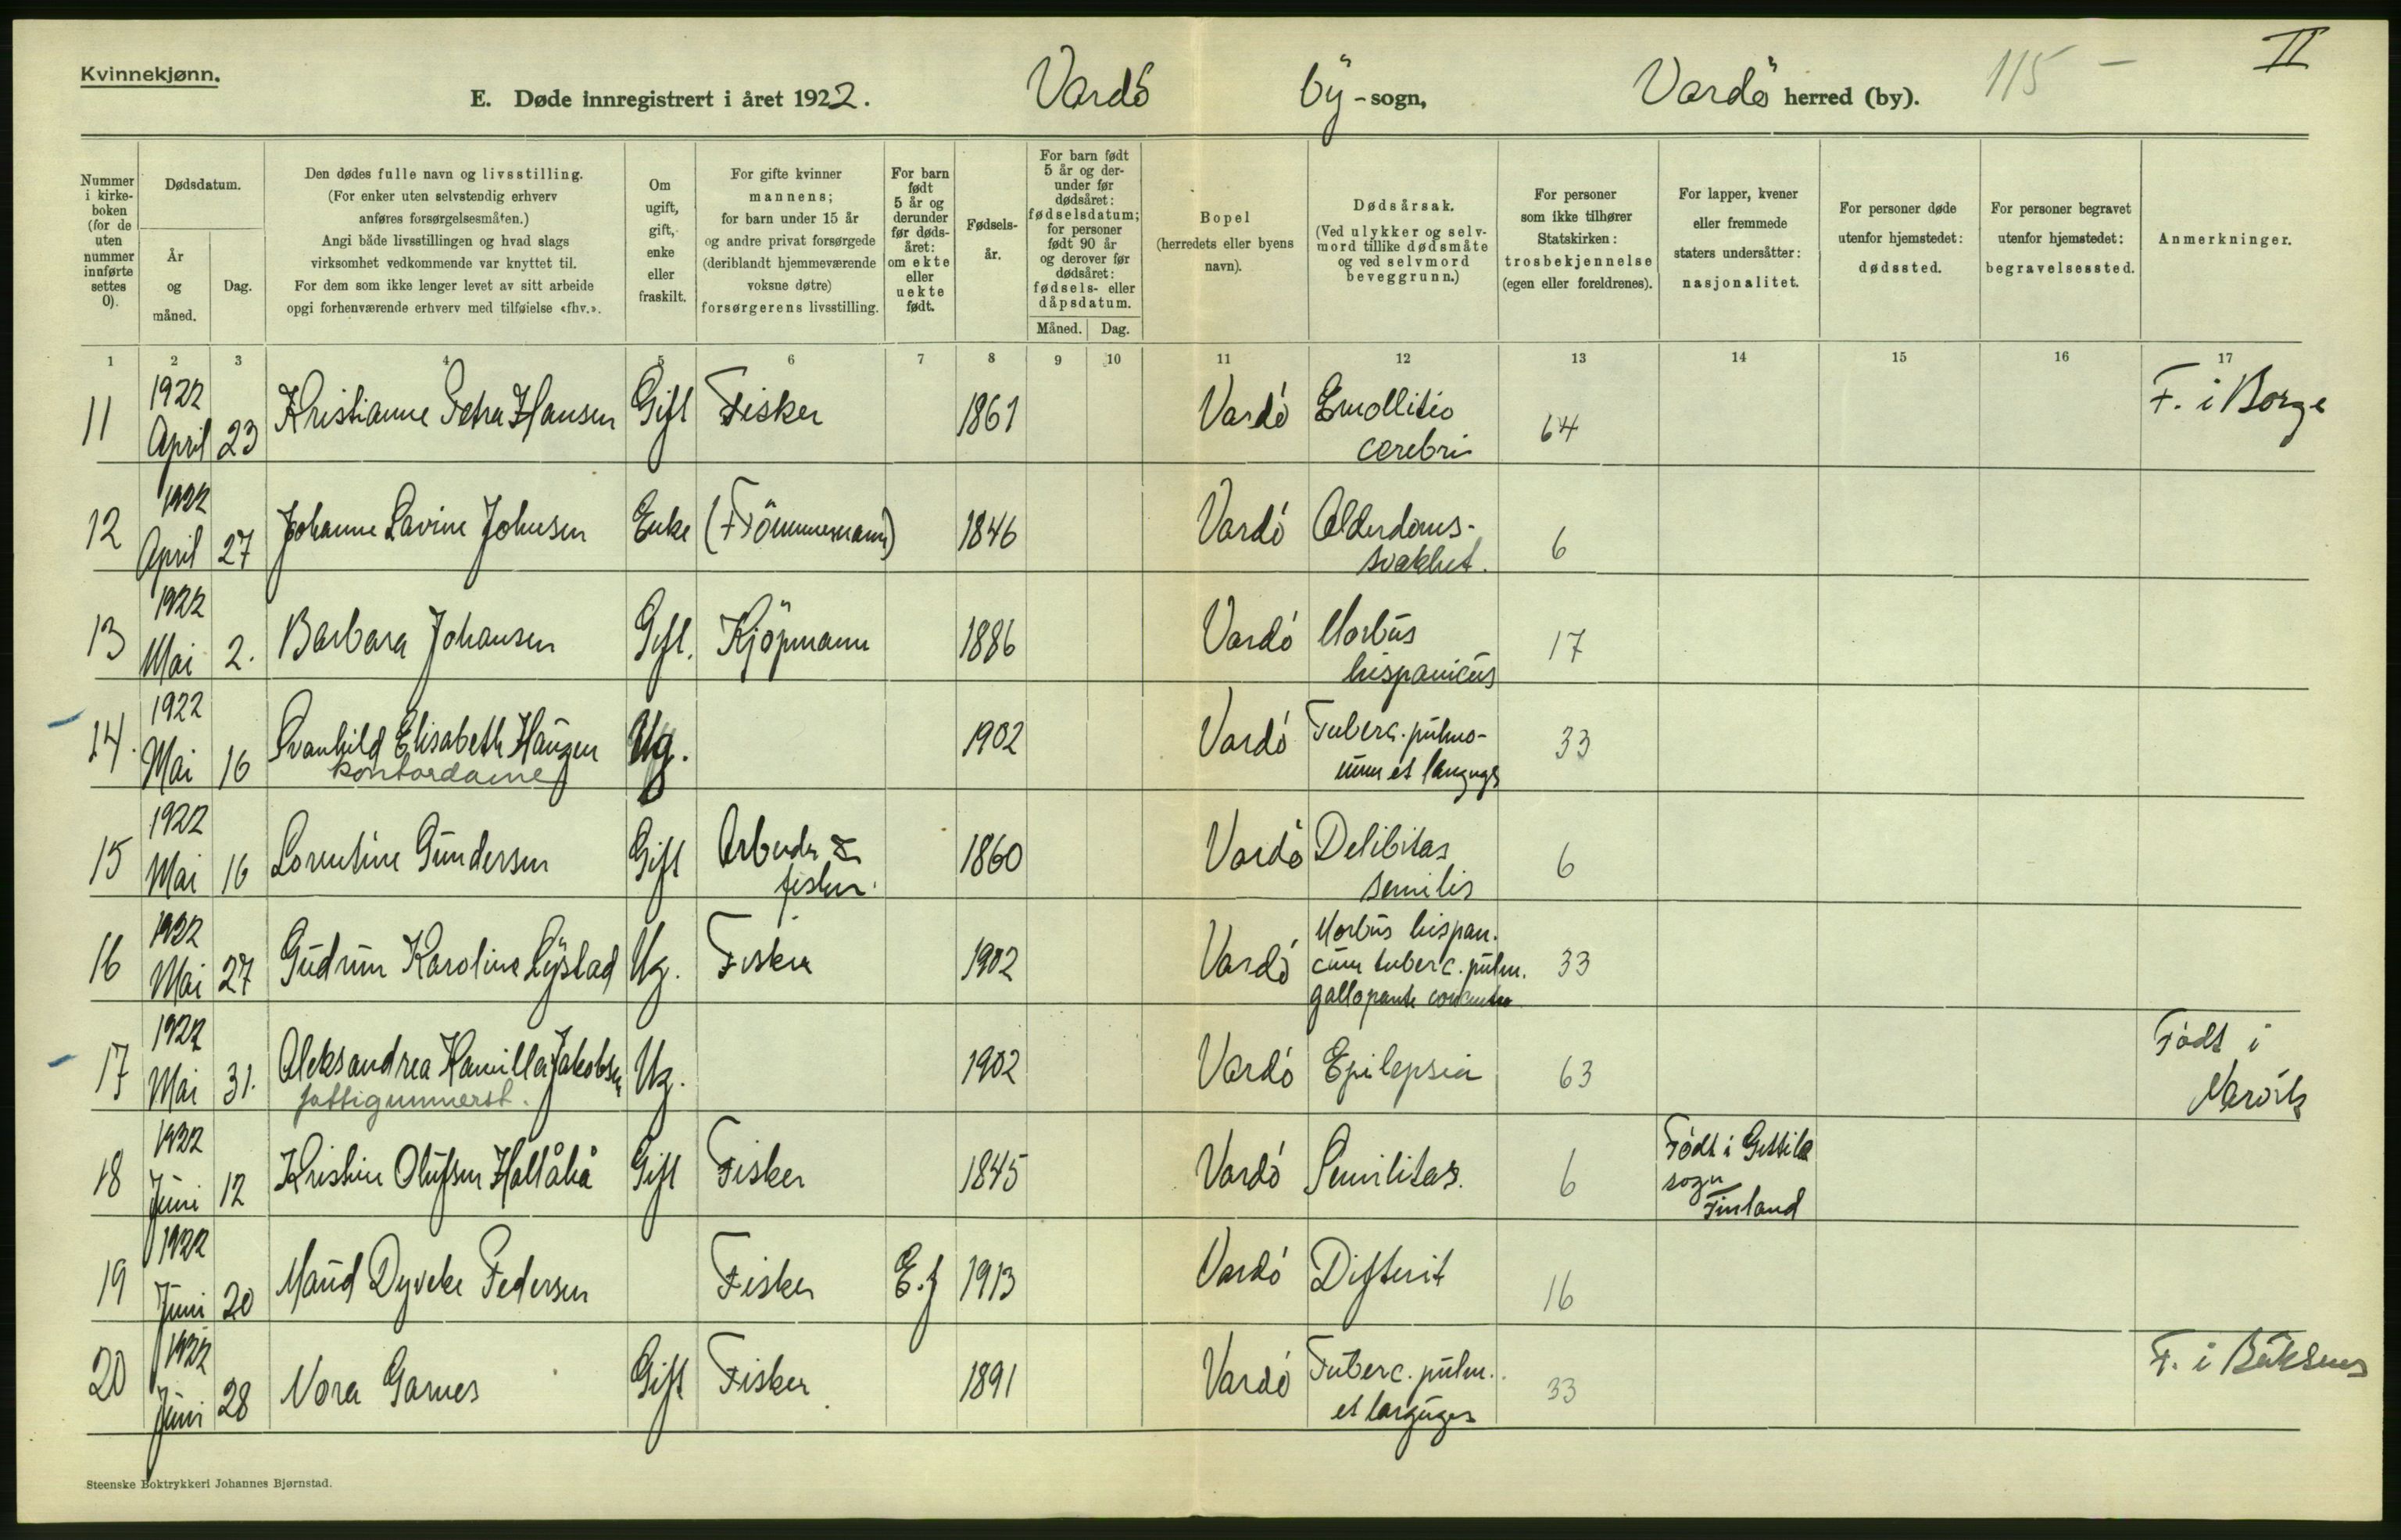 Kvinnekjønn.
E. Døde innregistrert i året 1922. Vardö by - sogn, Vardö herred (by). 115 - II
Nummer i kirkeboken (for de uten nummer innførte settes 0).
Dødsdatum.
År og måned.
Dag.
Den dødes fulle navn og livsstilling.
(For enker uten selvstendig erhverv
anføres forsørgelsesmåten.)
Angi både livsstillingen og hvad slags
virksomhet vedkommende var knyttet til.
For dem som ikke lenger levet av sitt arbeide
opgi forhenværende erhverv med tilføielse «fhv.».
Om ugift, gift, enke eller fraskilt.
For gifte kvinner
mannens;
for barn under 15 år
og andre privat forsørgede
(deriblandt hjemmeværende
voksne døtre)
forsørgerens livsstilling.
For barn født 5 år og derunder før dødsåret: om ekte eller uekte født.
Fødselsår.
For barn født 5 år og derunder før dødsåret: fødselsdatum; for personer født 90 år og derover før dødsåret: fødsels- eller dåpsdatum.
Måned. Dag.
Bopel
(herredets eller byens
navn).
Dødsårsak.
(Ved ulykker og selv-
mord tillike dødsmåte
og ved selvmord
beveggrunn.)
For personer
som ikke tilhører
Statskirken:
trosbekjennelse
(egen eller foreldrenes).
For lapper, kvener
eller fremmede
staters undersåtter:
nasjonalitet.
For personer døde
utenfor hjemstedet:
dødssted.
For personer begravet
utenfor hjemstedet:
begravelsessted.
Anmerkninger.
1 2 3 4 5 6 7 8 9 10 11 12 13 14 15 16 17
11 1922 April 23 Kristianne Petra Hansen Gift Fisker 1861 Vardö Emollitio cerebri 64 F. i Borge
12 1922 April 27 Johanne Lavine Johnsen Enke (Tömmermann) 1846 Vardö Alderdoms- svakhet. 6
13 1922 Mai 2. Barbara Johansen Gift. Kjöpmann 1886 Vardö Morbus hispanicus 17
14. 1922 Mai 16 Svanhild Elisabeth Haugen kontordame Ug. 1902 Vardö Tuberc. pulmo- num et laryngs 33
15 1922 Mai 16 Lorentine Gundersen Gift Arbeider & fisker. 1860 Vardö Delibitas senilis 6
16 1922 Mai 27 Gudrun Karoline Lystad Ug. Fisker 1902 Vardö Morbus hispan. cum tuberc. pulm. gallopante 33
17 1922 Mai 31. Aleksandrea Kamilla Jakobsen fattigunnerst. Ug. 1902 Vardö Epilepsia 63 Født i Narvik
18 1922 Juni 12 Kristine Olufsen Gift Fisker 1845 Vardö Senilitas. 6 Födt i sogn Finland
19 1922 Juni 20 Maud Dyveke Pedersen Fisker E.f 1913 Vardö Difterit 16
20 1922 Juni 28 Nora Garnes Gift Fisker 1891 Vardö Tuberc. pulm. et larynges 33 F. i Båtsnes
Steenske Boktrykkeri Johannes Bjørnstad.